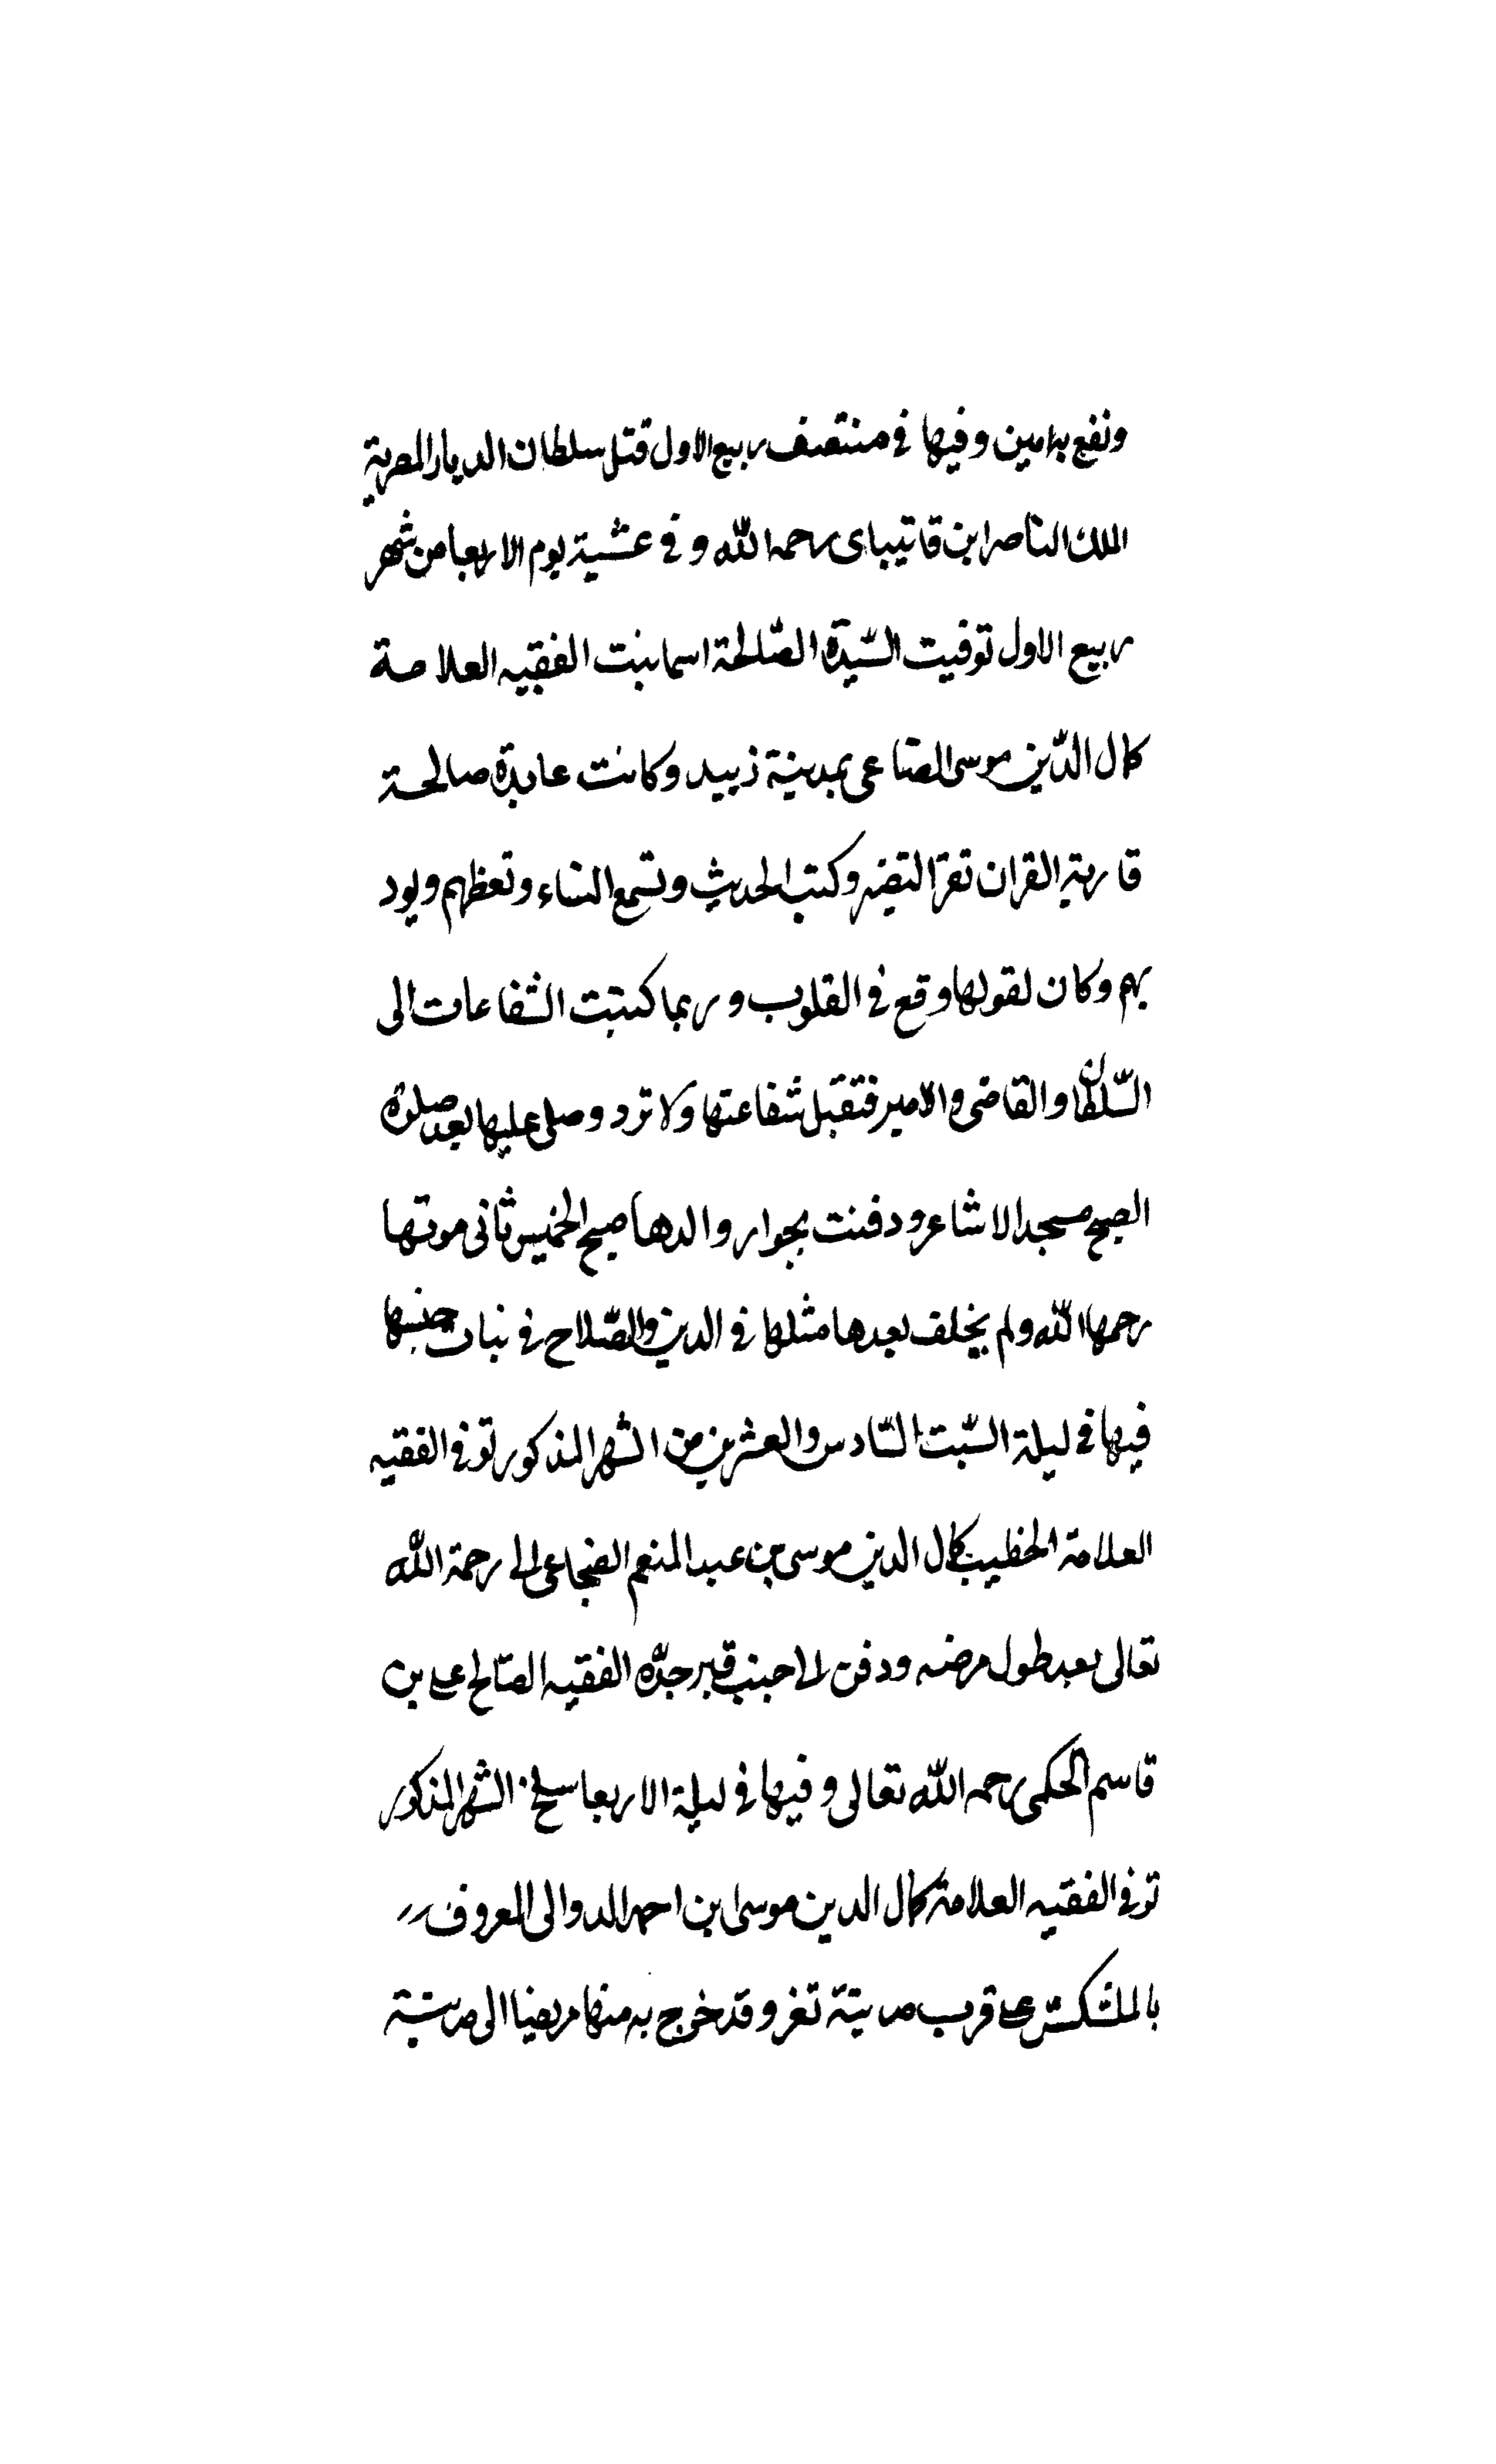 ونفع به امين وفيها في منتصف ربيع الاول قتل سلطان الديار المصرية
الملك الناصر ابن قاتيباى رحمه الله وفي عشية يوم الاربعا من شهر
ربيع الاول توفيت السّيدة الصّالحة اسما بنت الفقيه العلامة
كمال الدّين موسى الضاعى بمدينة زبيد وكانت عابدة صالحة
قارية القران تقرا التفسير وكتب الحديث وتسمع النساء وتعظهم ويود
بهم وكان لقولها وقع في القلوب وربما كتبت الشفاعات الى
السّلطان والقاضى والامير فتقبل شفاعتها ولا ترد وصلى عليها بعد صلوة
الصبح مسجد الاشاعر ودفنت بجوار والدها صبح الخميس ثانى موتها
رحمها الله ولم يخلف بعدها مثلها في الدين والصّلاح في بنات جنسها
فيها في ليلة السّبت السّادس والعشرين من الشهر المذكور توفي الفقيه
العلامة الخطيب كمال الدين موسى بن عبد المنعم الضجاعى الى رحمة الله
تعالى بعد طول مرضه ودفن الى جنب قبر جدّه الفقيه الصالح على بن
قاسم الحكمى رحمه الله تعالى وفيها في ليلة الاربعا سلخ الشهر المذكور
توفي الفقيه العلامة كمال الدين موسى ابن احمد الدوالى المعروف
بالمتشكش على قرب مدينة تعز وقد خرج به منها مريضا الى مدينة